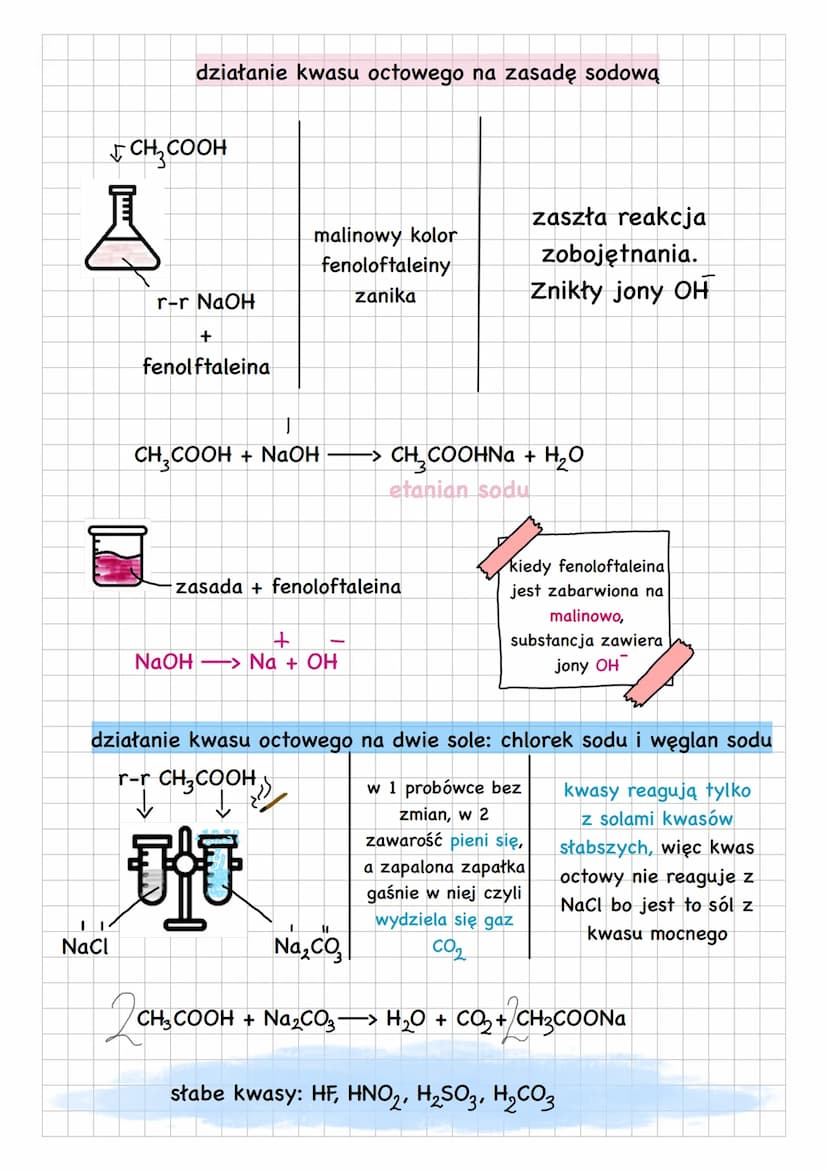 działanie kwasu octowego na zasadę sodową
CH₃COOH
r-r NaOH
+
fenolftaleina
malinowy kolor
fenoloftaleiny
zanika
zaszła reakcja
zobojętnania.
Znikły jony OH⁻
I
CH₃COOH + NaOH ⟶ CH₃COOHNa + H₂O
etanian sodu
zasada + fenoloftaleina
NaOH ⟶ Na⁺ + OH⁻
kiedy fenoloftaleina
jest zabarwiona na
malinowo,
substancja zawiera
jony OH⁻
działanie kwasu octowego na dwie sole: chlorek sodu i węglan sodu
r-r CH₃COOH
I I
NaCl
I II
Na₂CO₃
w 1 probówce bez
zmian, w 2
zawarość pieni się,
a zapalona zapałka
gaśnie w niej czyli
wydziela się gaz
CO₂
kwasy reagują tylko
z solami kwasów
słabszych, więc kwas
octowy nie reaguje z
NaCl bo jest to sól z
kwasu mocnego
2CH₃COOH + Na₂CO₃ ⟶ H₂O + CO₂ + 2CH₃COONa
słabe kwasy: HF, HNO₂, H₂SO₃, H₂CO₃